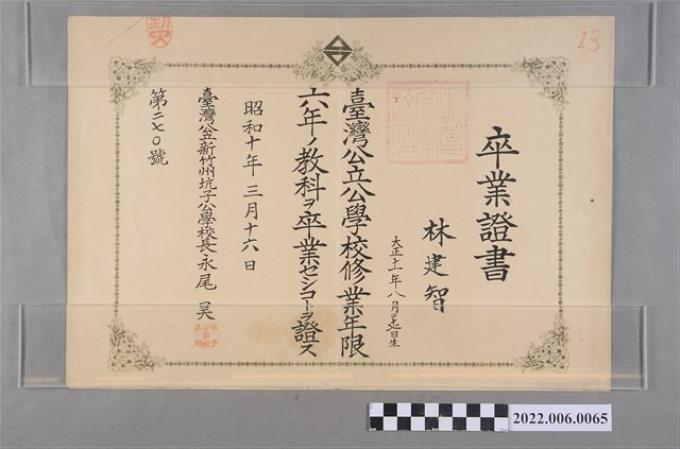 卒業證書
林建智
大正十一年八月
日生
臺灣公立公學校修業年限
六年ノ教科ヲ卒業セシコトヲ證ス
昭和十年三月十六日
臺灣公立新竹州坑子公學校長永尾昊
第二七〇號
13
2022.006.0065